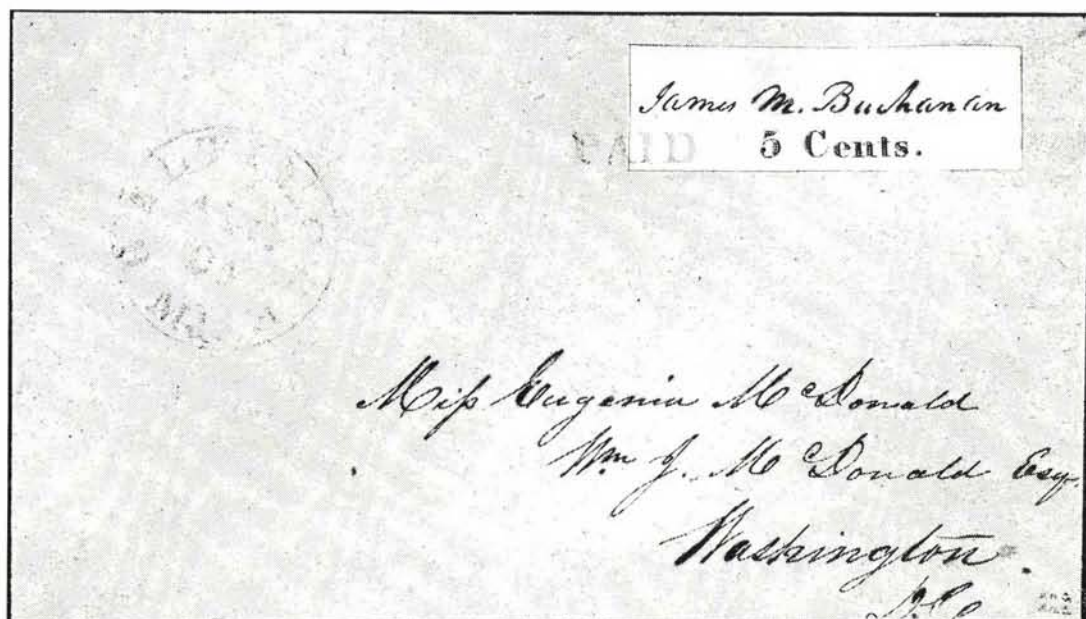 James M. Buchanan
PAID
5 Cents.
Miſs Eugenia McDonald
Wm J. McDonald Esq.
Washington.
D.C.